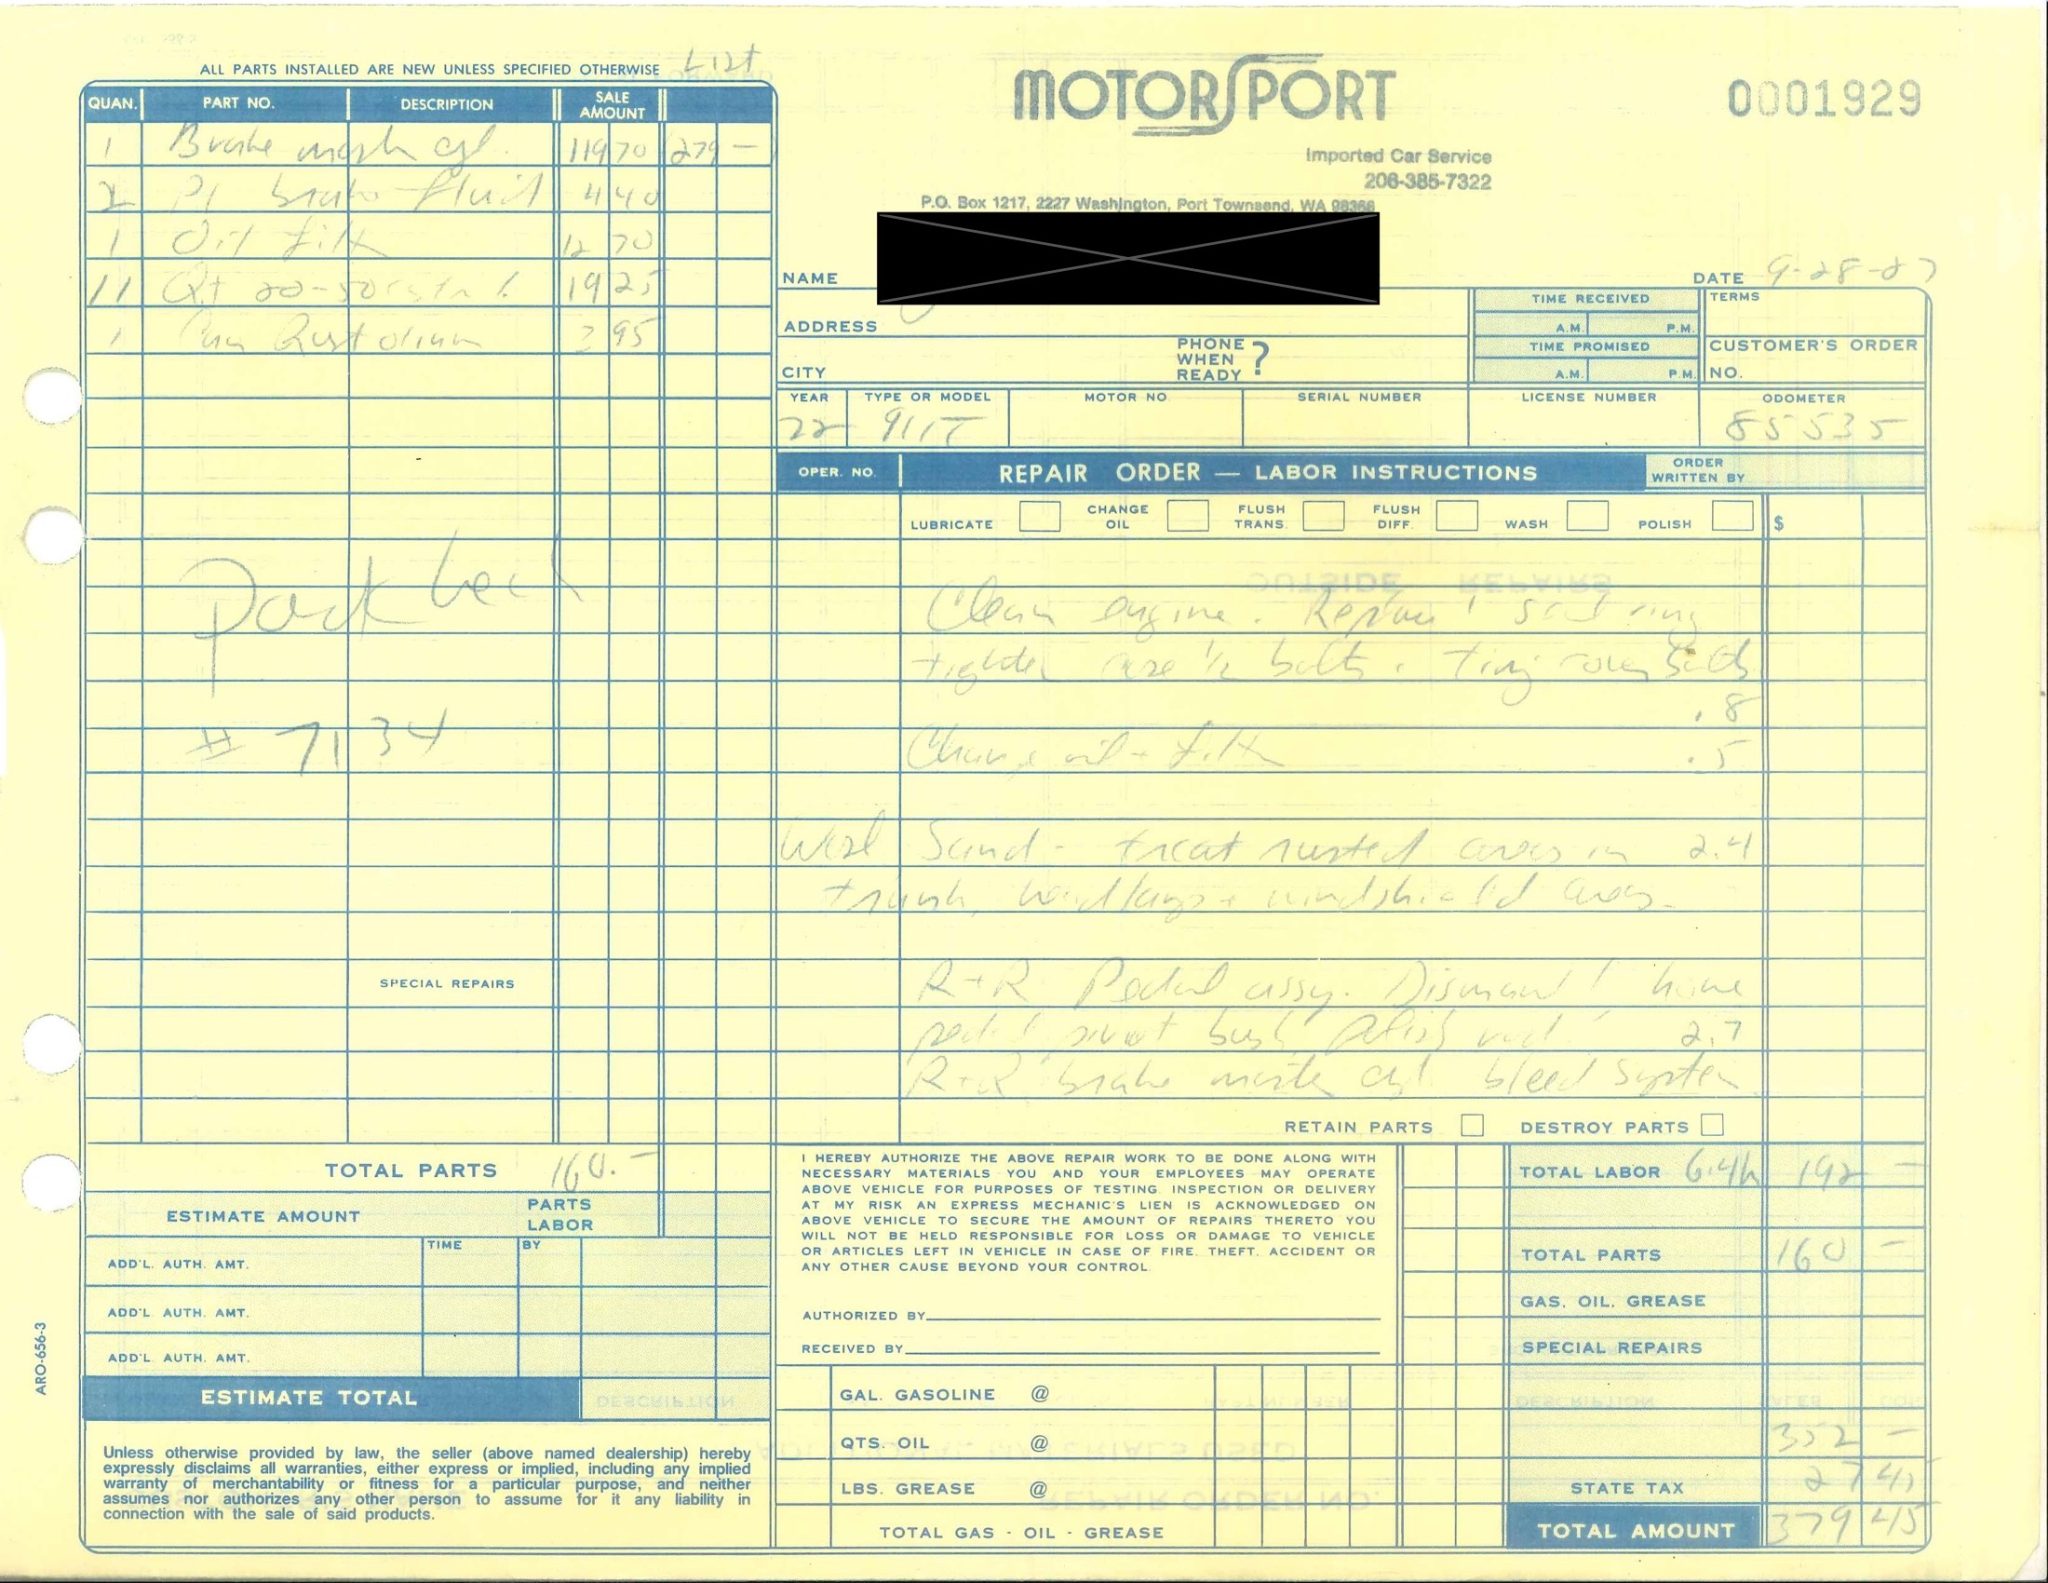 ALL PARTS INSTALLED ARE NEW UNLESS SPECIFIED OTHERWISE List
QUAN. PART NO. DESCRIPTION SALE AMOUNT
1 Brake mast cyl. 119 70 279 -
2 Pt brake fluid 4 40
1 Oil filt 12 70
11 Qt 20-50 19 25
1 Can 3 95
Pack
# 7134
SPECIAL REPAIRS
TOTAL PARTS 160. -
ESTIMATE AMOUNT PARTS LABOR
TIME BY
ADD'L. AUTH. AMT.
ADD'L. AUTH. AMT.
ADD'L. AUTH. AMT.
ESTIMATE TOTAL
Unless otherwise provided by law, the seller (above named dealership) hereby
expressly disclaims all warranties, either express or implied, including any implied
warranty of merchantability or fitness for a particular purpose, and neither
assumes nor authorizes any other person to assume for it any liability in
connection with the sale of said products.
ARO-656-3
MOTORSPORT
0001929
Imported Car Service
206-385-7322
P.O. Box 1217, 2227 Washington, Port Townsend, WA 98368
NAME DATE 9-28-87
ADDRESS
CITY
PHONE WHEN READY ?
TIME RECEIVED
A.M. P.M.
TIME PROMISED
A.M. P.M.
TERMS
CUSTOMER'S ORDER NO.
YEAR TYPE OR MODEL MOTOR NO SERIAL NUMBER LICENSE NUMBER ODOMETER
72 911T 85535
OPER. NO. REPAIR ORDER — LABOR INSTRUCTIONS ORDER WRITTEN BY
LUBRICATE CHANGE OIL FLUSH TRANS. FLUSH DIFF. WASH POLISH $
Clean engine. Repair
tighten case 1/2 bolts.
.8
Change oil + filt .5
Sand - treat rusted areas in 2.4
trunk, headlamps + windshield areas.
R+R Pedal assy. Dismantl hone
pedal pivot bush, polish rod 2.7
R+R brake master cyl bleed system
RETAIN PARTS DESTROY PARTS
I HEREBY AUTHORIZE THE ABOVE REPAIR WORK TO BE DONE ALONG WITH
NECESSARY MATERIALS YOU AND YOUR EMPLOYEES MAY OPERATE
ABOVE VEHICLE FOR PURPOSES OF TESTING. INSPECTION OR DELIVERY
AT MY RISK AN EXPRESS MECHANIC'S LIEN IS ACKNOWLEDGED ON
ABOVE VEHICLE TO SECURE THE AMOUNT OF REPAIRS THERETO YOU
WILL NOT BE HELD RESPONSIBLE FOR LOSS OR DAMAGE TO VEHICLE
OR ARTICLES LEFT IN VEHICLE IN CASE OF FIRE. THEFT. ACCIDENT OR
ANY OTHER CAUSE BEYOND YOUR CONTROL.
AUTHORIZED BY
RECEIVED BY
GAL. GASOLINE @
QTS. OIL @
LBS. GREASE @
TOTAL GAS - OIL - GREASE
TOTAL LABOR 6.4h 192 -
TOTAL PARTS 160 -
GAS. OIL. GREASE
SPECIAL REPAIRS
352 -
STATE TAX 27 45
TOTAL AMOUNT 379 45